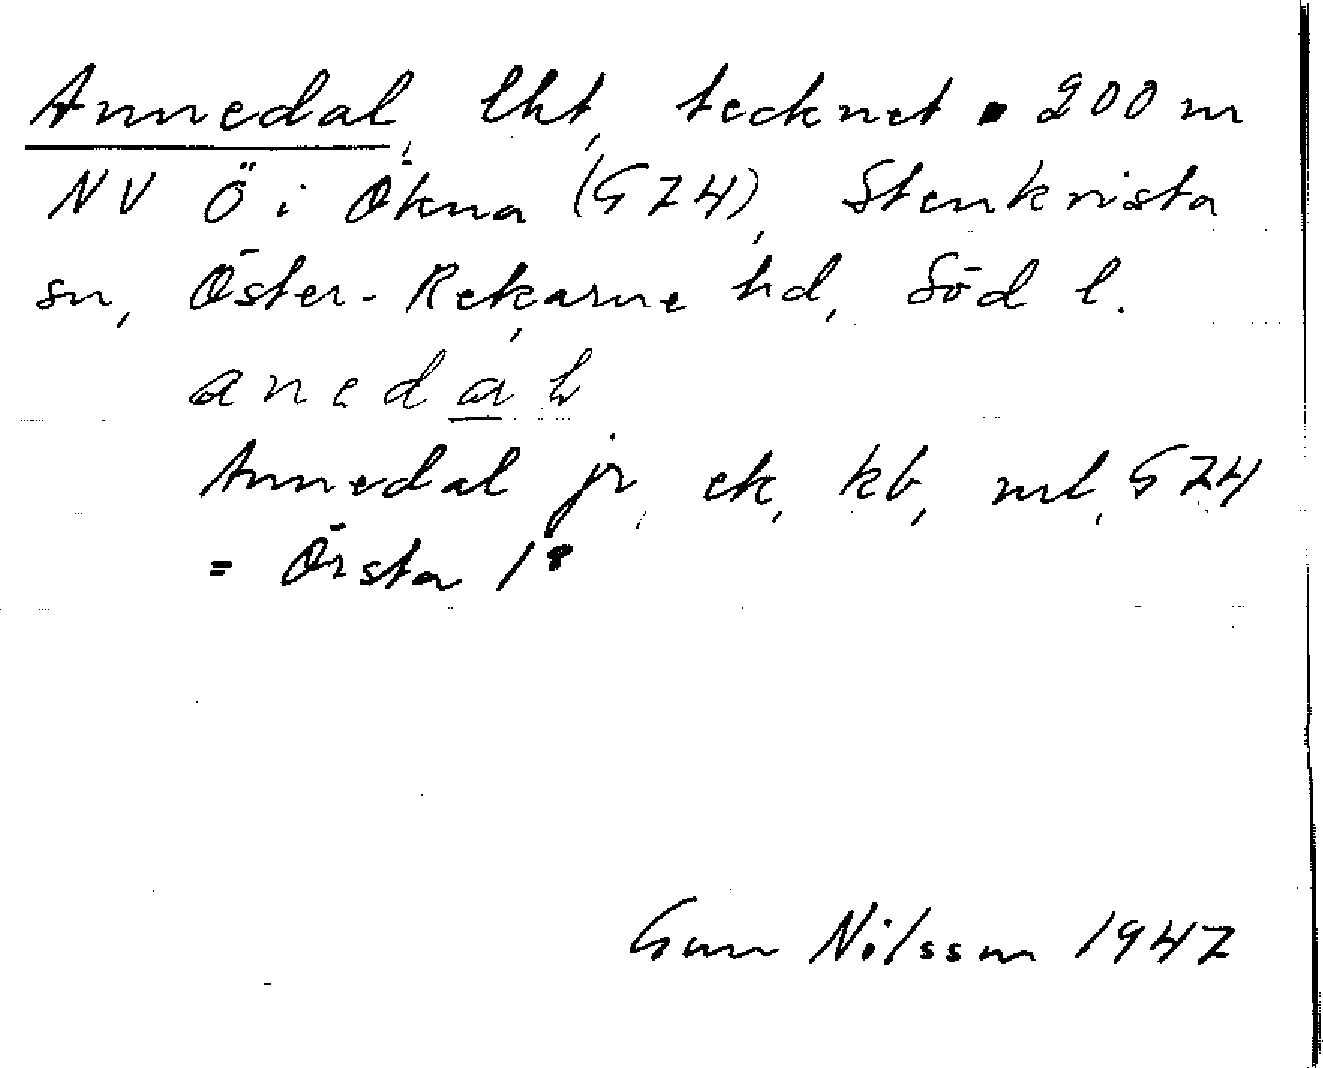 Annedal, lht, tecknet ▪ 200 m
NV Ö i Ökna (GZ4), Stenkvista
sn, Öster-Rekarne hd, Söd l.
anedá
Annedal jr, ek, kb, ml, GZ4
= Örsta 1⁸
Gun Nilsson 1947